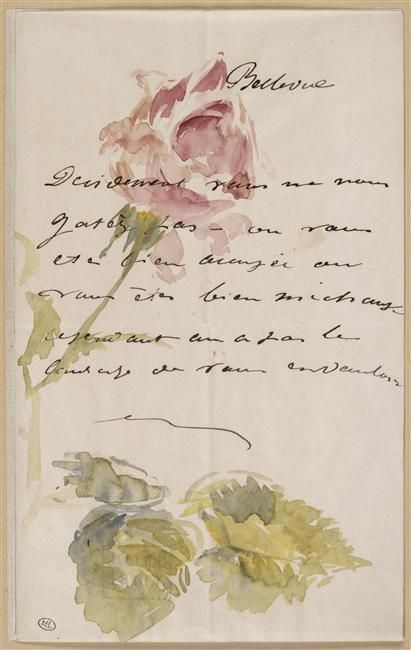 Bellevue
Décidement vous ne nous
gatéz pas - ou vous
etes bien occupée ou
vous êtes bien méchante
cependant on a pas le
courage de vous en vouloir
ML